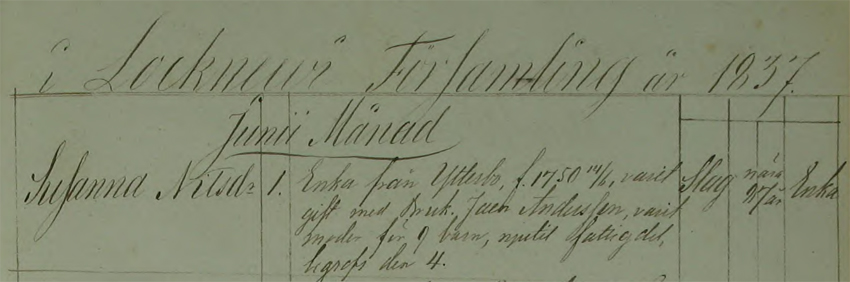 i Locknewi Församling år 1837.
Junii Månad
Susanna Nilsd: 1. Enka från Ytterbo, f. 1750, varit Slag nära 87 år Enka
gift med Bruk. Jacob Andersson, varit
moder för 9 barn, njutit fattigdel,
begrofs den 4.